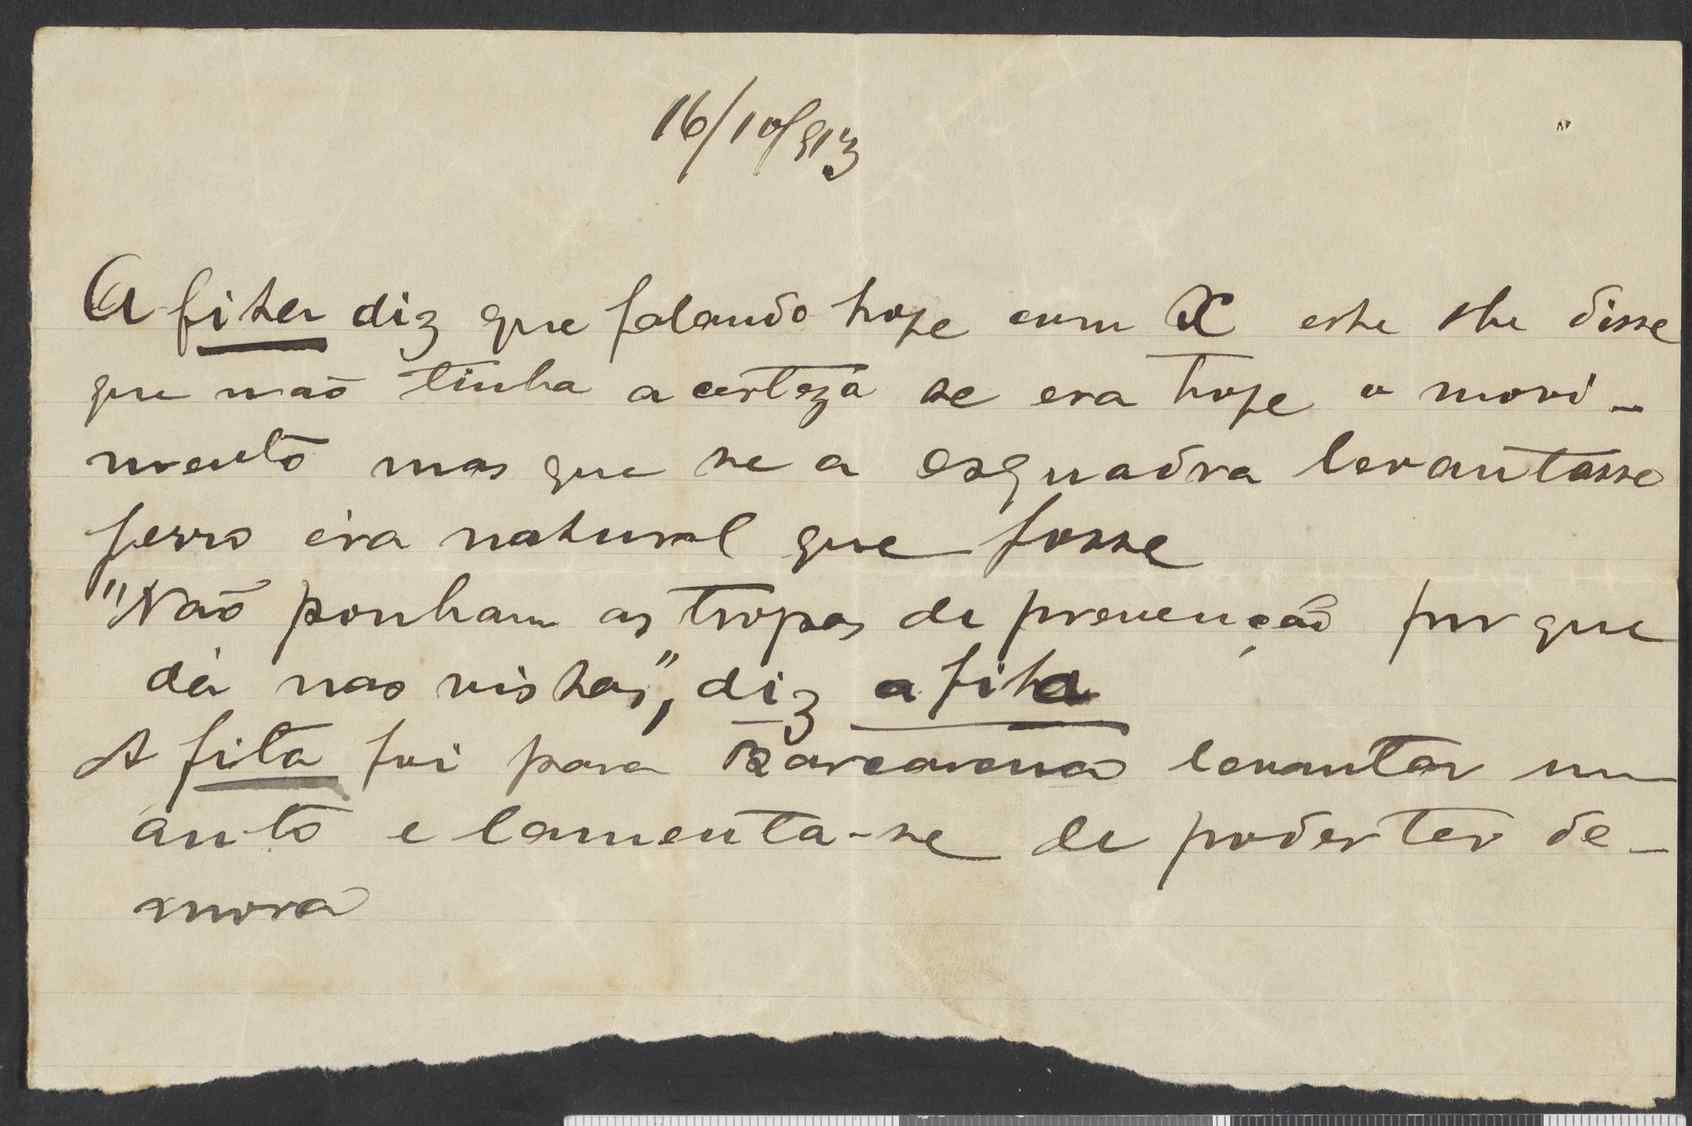 16/10/913
A fita diz que falando hoje com X este lhe disse
que não tinha a certeza se era hoje o movi-
mento mas que se a esquadra levantasse
ferro éra natural que fosse
"Não ponham as tropas de prevenção porque
dá nas vistas", diz a fita
A fita foi para Barcarena levantar um
auto e lamenta-se de poder ter de-
mora